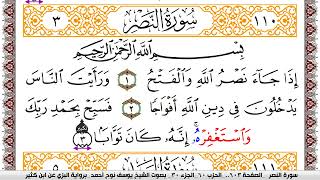 ١١٠ سُورَةُ النَّصْرِ ٣
بِسْمِ اللَّهِ الرَّحْمَٰنِ الرَّحِيمِ
إِذَا جَاءَ نَصْرُ اللَّهِ وَالْفَتْحُ ١ وَرَأَيْتَ النَّاسَ
يَدْخُلُونَ فِي دِينِ اللَّهِ أَفْوَاجًا ٢ فَسَبِّحْ بِحَمْدِ رَبِّكَ
وَاسْتَغْفِرْهُ إِنَّهُ كَانَ تَوَّابًا ٣
١١١ سُورَةُ
سورة النصر الصفحة ٦٠٣ الحزب ٦٠ الجزء ٣٠ بصوت الشيخ يوسف نوح أحمد برواية البزي عن ابن كثير